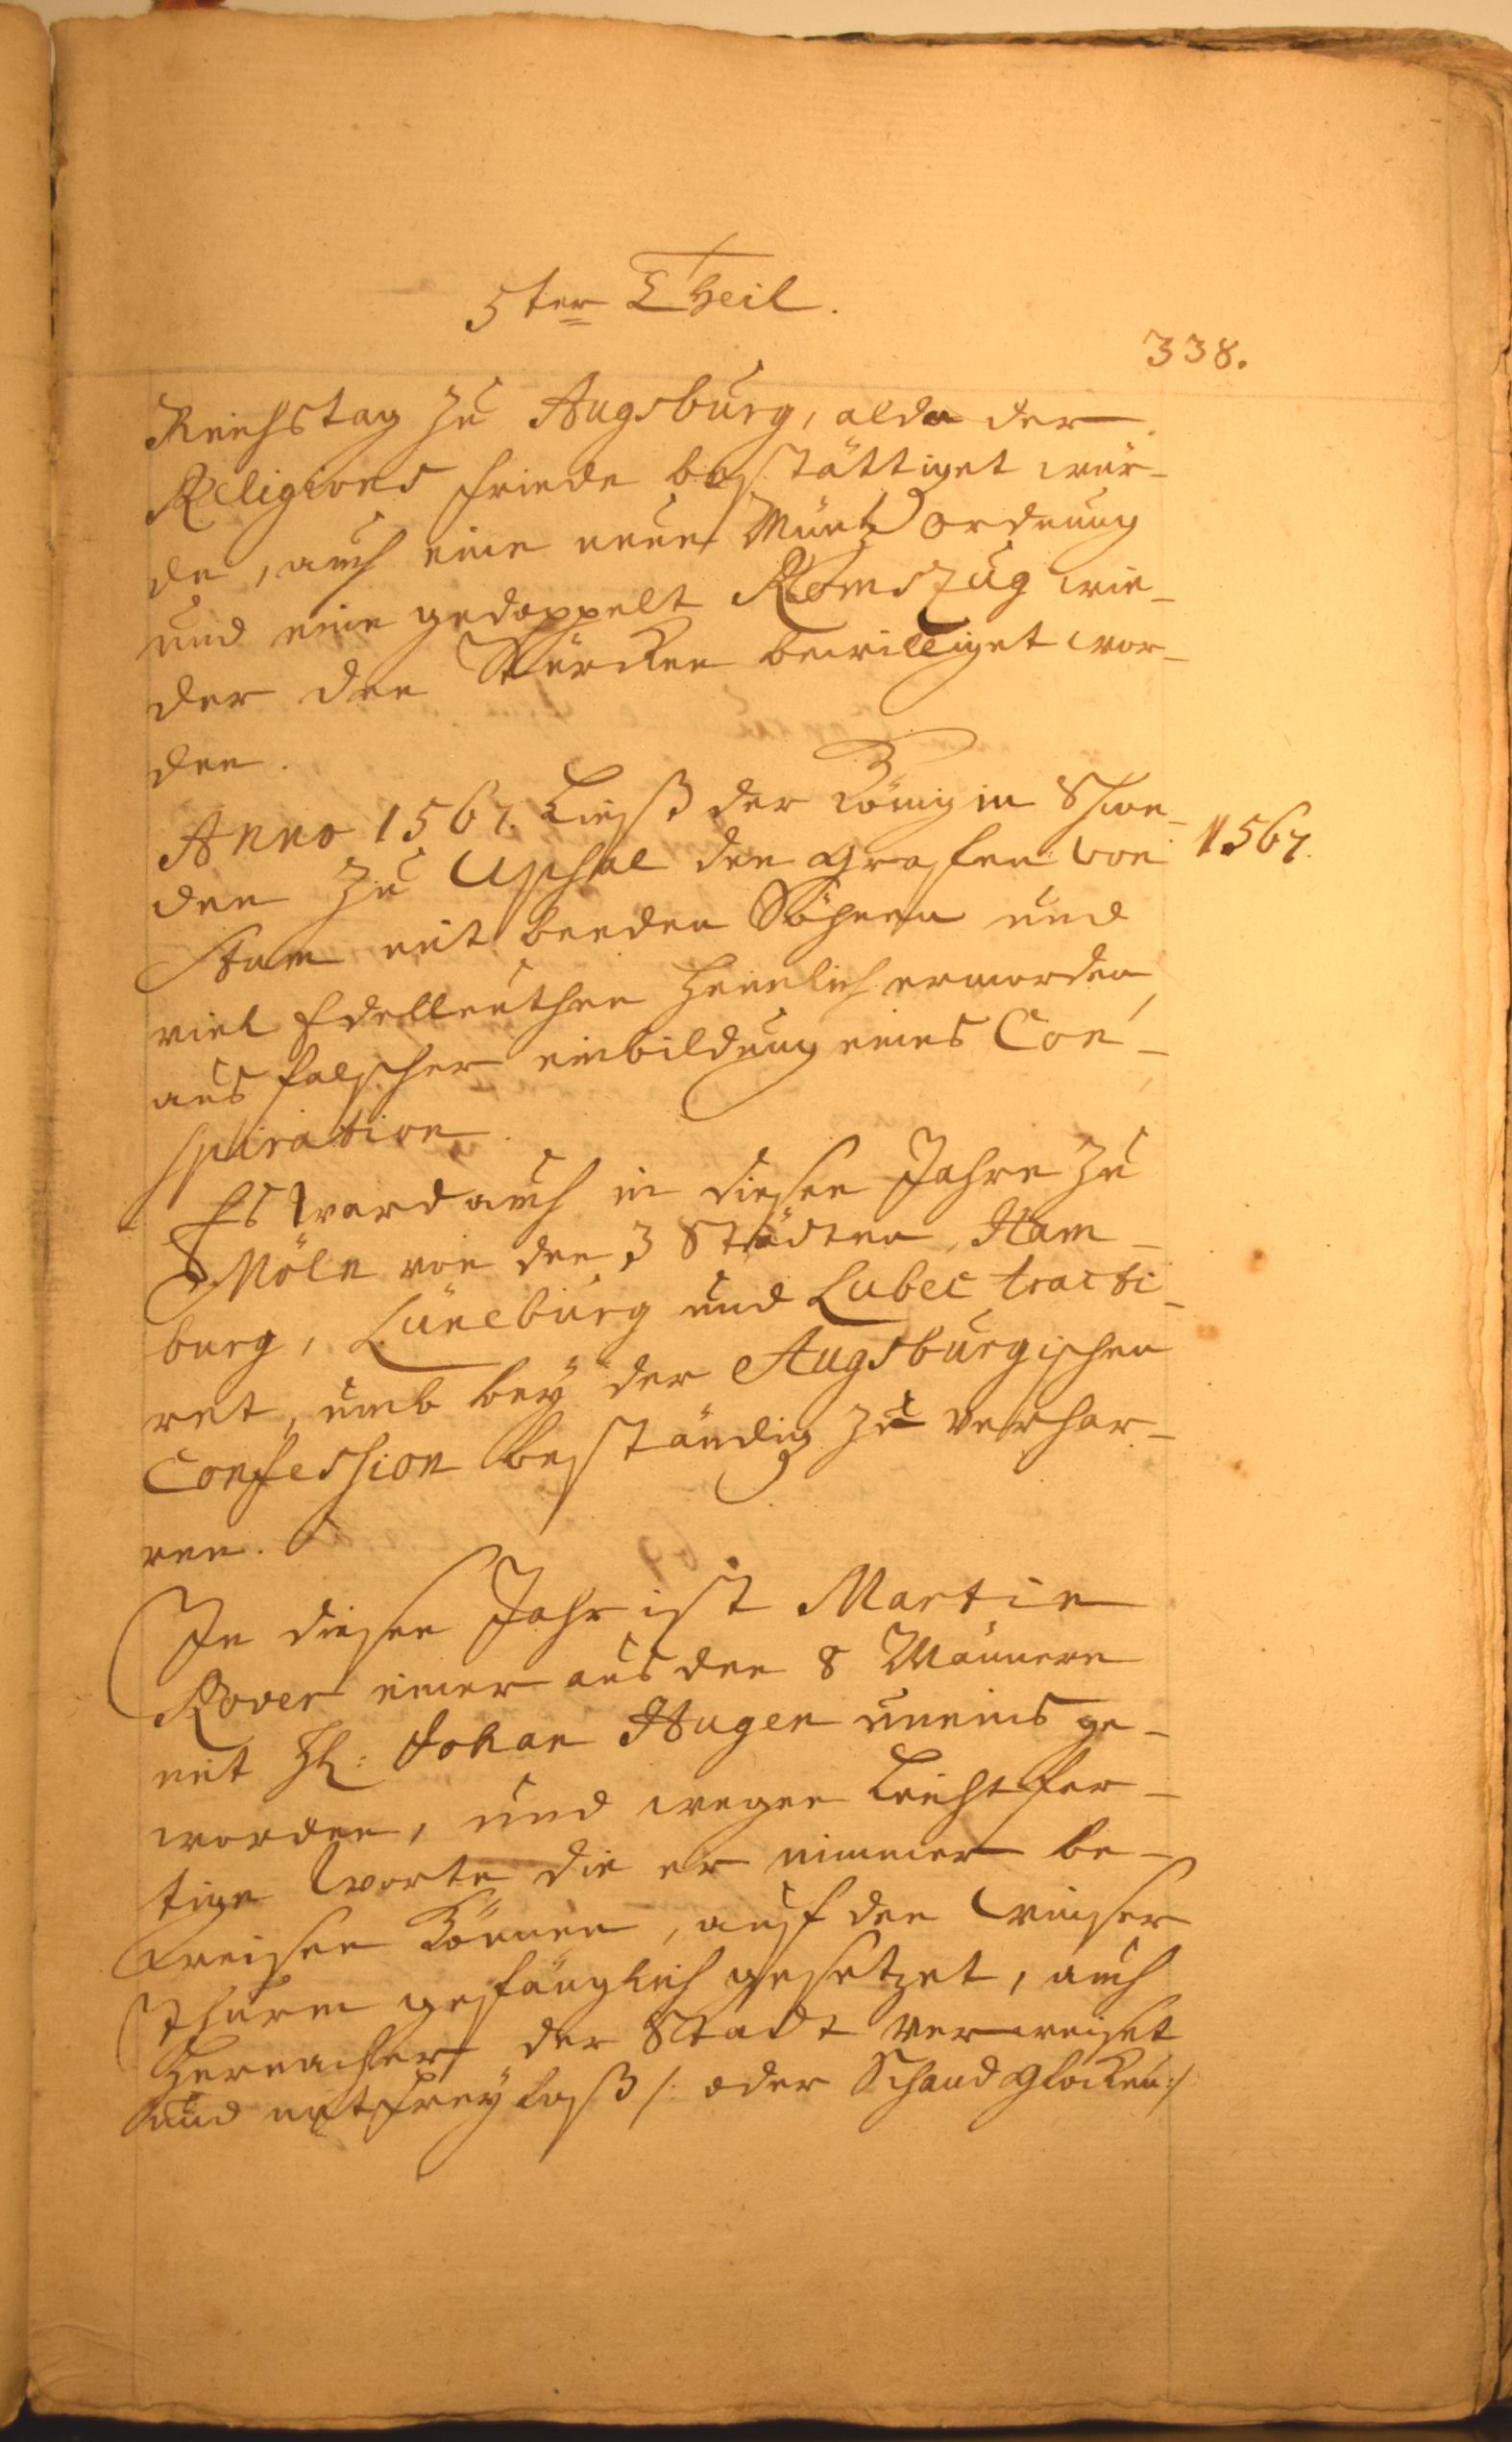 5ter Theil.
338.
Reichstag zu Augsburg, alda der
Religions friede bestättiget wur-
de, auch eine neue Müntz ordnung
und eine gedoppelt Romszug wie-
der den Türcken bewilliget wor-
den.
Anno 1567. Ließ der König in Schwe-
1567.
den zu Upsal den Grafen von
Stum mit beeden Söhnen und
viel Edelleuthen heimlich ermorden
aus falscher einbildung eines Con-
spiration.
Es ward auch in diesen Jahre zu
Möln von den 3 Städten, Ham-
burg, Lüneburg und Lubec tracti-
ret, umb bey der Augsburgischen
Confession beständig zu verhar-
ren.
In diesen Jahr ist Martin
Rover einer aus den 8 Männern
mit H: Johan Hugen uneins ge-
worden, und wegen Leichtfer-
tige Worte die er nimmer be-
weisen können, auf den Winser
Thurm gefänglich gesetzet, auch
hernacher der Stadt verweiset
und mit freylaß /: oder Schand Glocken :/